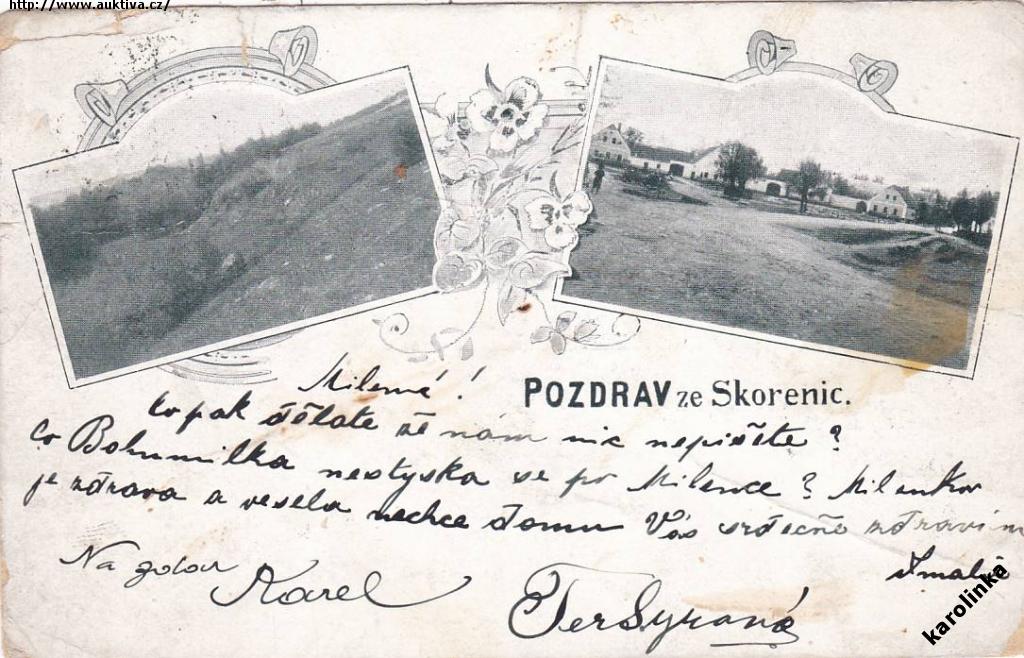 http://www.auktiva.cz/
POZDRAV ze Skorenic.
Milená!
Co pak děláte že nám nic nepíšete?
Co Bohumilka nestýska se po Milence? Milenka
je zdráva a vesela nechce domu Vás srdečně zdravím
Na zdar Karel
karolinka